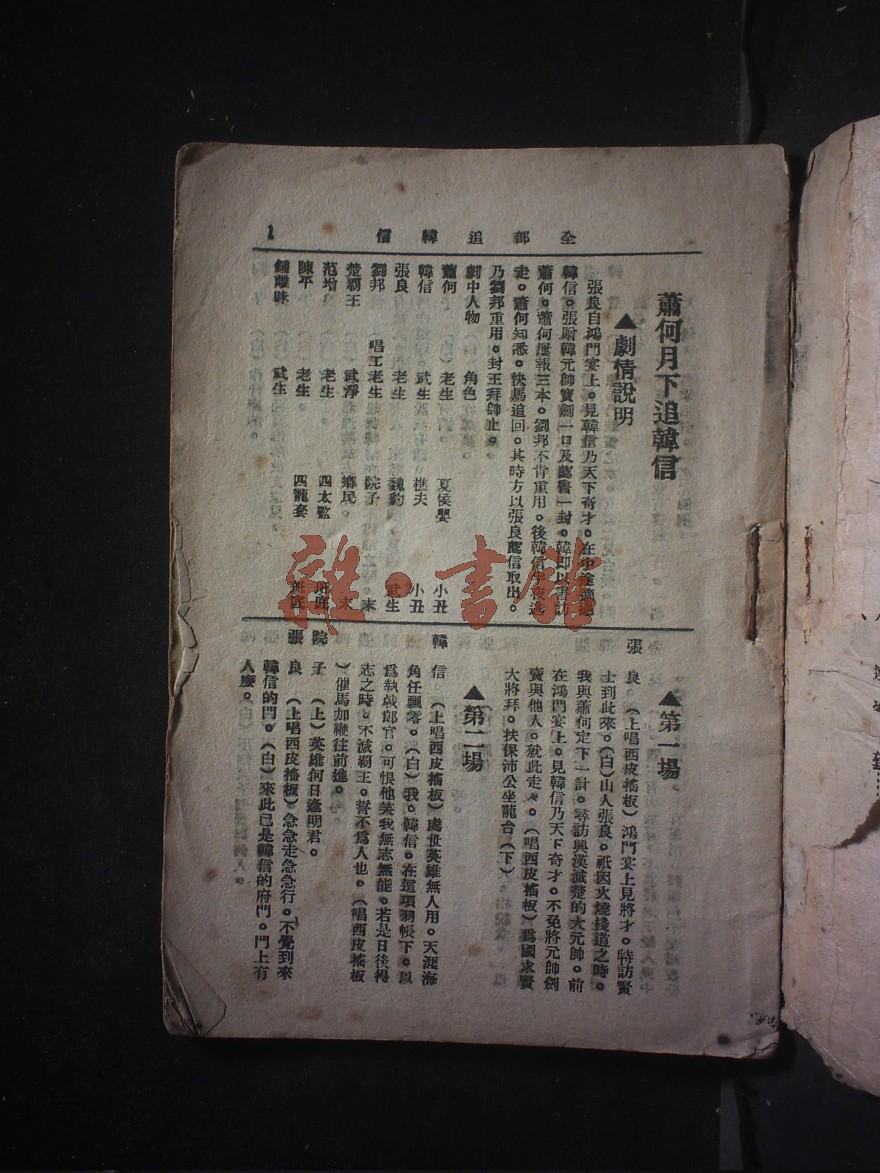 全部追韓信
1
蕭何月下追韓信
▲劇情說明
張良自鴻門宴上。見韓信乃天下奇才。在中途適遇
韓信。張贈韓元帥寶劍一口及薦書一封。韓即以書訪
蕭何。蕭何屢報三本。劉邦不肯重用。後韓信半夜逃
走。蕭何知悉。快馬追回。其時方以張良薦信取出。
乃劉邦重用。封王拜帥止。
劇中人物 角色
蕭何 老生 夏侯嬰 小丑
韓信 武生 樵夫 小丑
張良 老生 魏豹 武生
劉邦 唱工老生 院子 末
楚霸王 武淨 鄉民 末
范增 老生 四太監
陳平 老生 四龍套
鍾離昧 武生
▲第一場
張良 (上唱西皮搖板)鴻門宴上見將才。特訪賢
士到此來。(白)山人張良。祇因火燒棧道之時。
我與蕭何定下一計。尋訪興漢滅楚的大元帥。前
在鴻門宴上。見韓信乃天下奇才。不免將元帥劍
賣與他人。就此走々。(唱西皮搖板)爲國求賢
大將拜。扶保沛公坐龍台(下)
▲第二場
韓信 (上唱西皮搖板)處世英雄無人用。天涯海
角任飄零。(白)我。韓信。在這項羽帳下。以
爲執戟郎官。可恨他笑我無志無能。若是日後得
志之時。不滅霸王。誓不爲人也。(唱西皮搖板
)催馬加鞭往前進。
院子 (上)英雄何日逢明君。
張良 (上唱西皮搖板)急急走急急行。不覺到來
韓信的門。(白)來此已是韓信的府門。門上有
人麼。
雜·書館